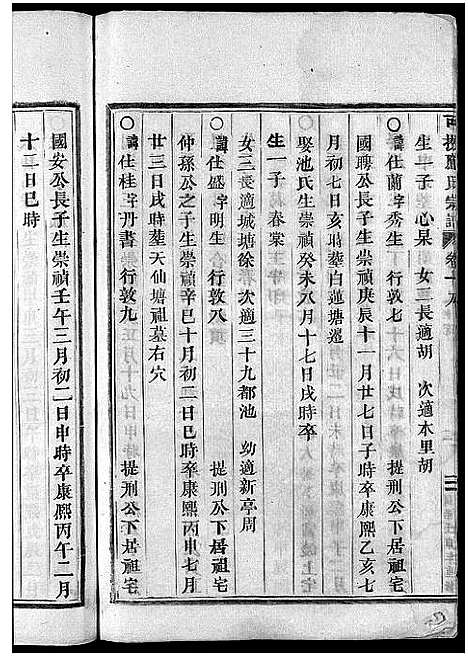 應氏宗譜 卷十九
生一子 心杲 女三長適胡 次適本里胡
〇諱仕蘭字秀生 行敦七 提刑公下居祖宅
國聘公長子生崇禎庚辰十一月廿七日子時卒康熙乙亥七
月初七日亥時葬白蓮塘邊
娶池氏生崇禎癸未八月十七日戌時卒
生一子 春棠
女三長適城塘徐 次適三十九都池 幼適新亭周
〇諱仕盛字明生 行敦八 提刑公下居祖宅
仲孫公之子生崇禎辛巳十月初二日巳時卒康熙丙申七月
廿三日戌時葬天仙塘祖墓右穴
〇諱仕桂字丹書 行敦九 提刑公下居祖宅
國安公長子生崇禎壬午三月初二日申時卒康熙丙午二月
十二日巳時